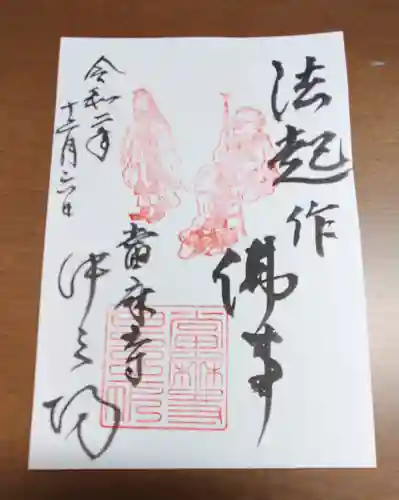 法起作
佛事
當麻寺
中之坊
令和二年
十二月六日